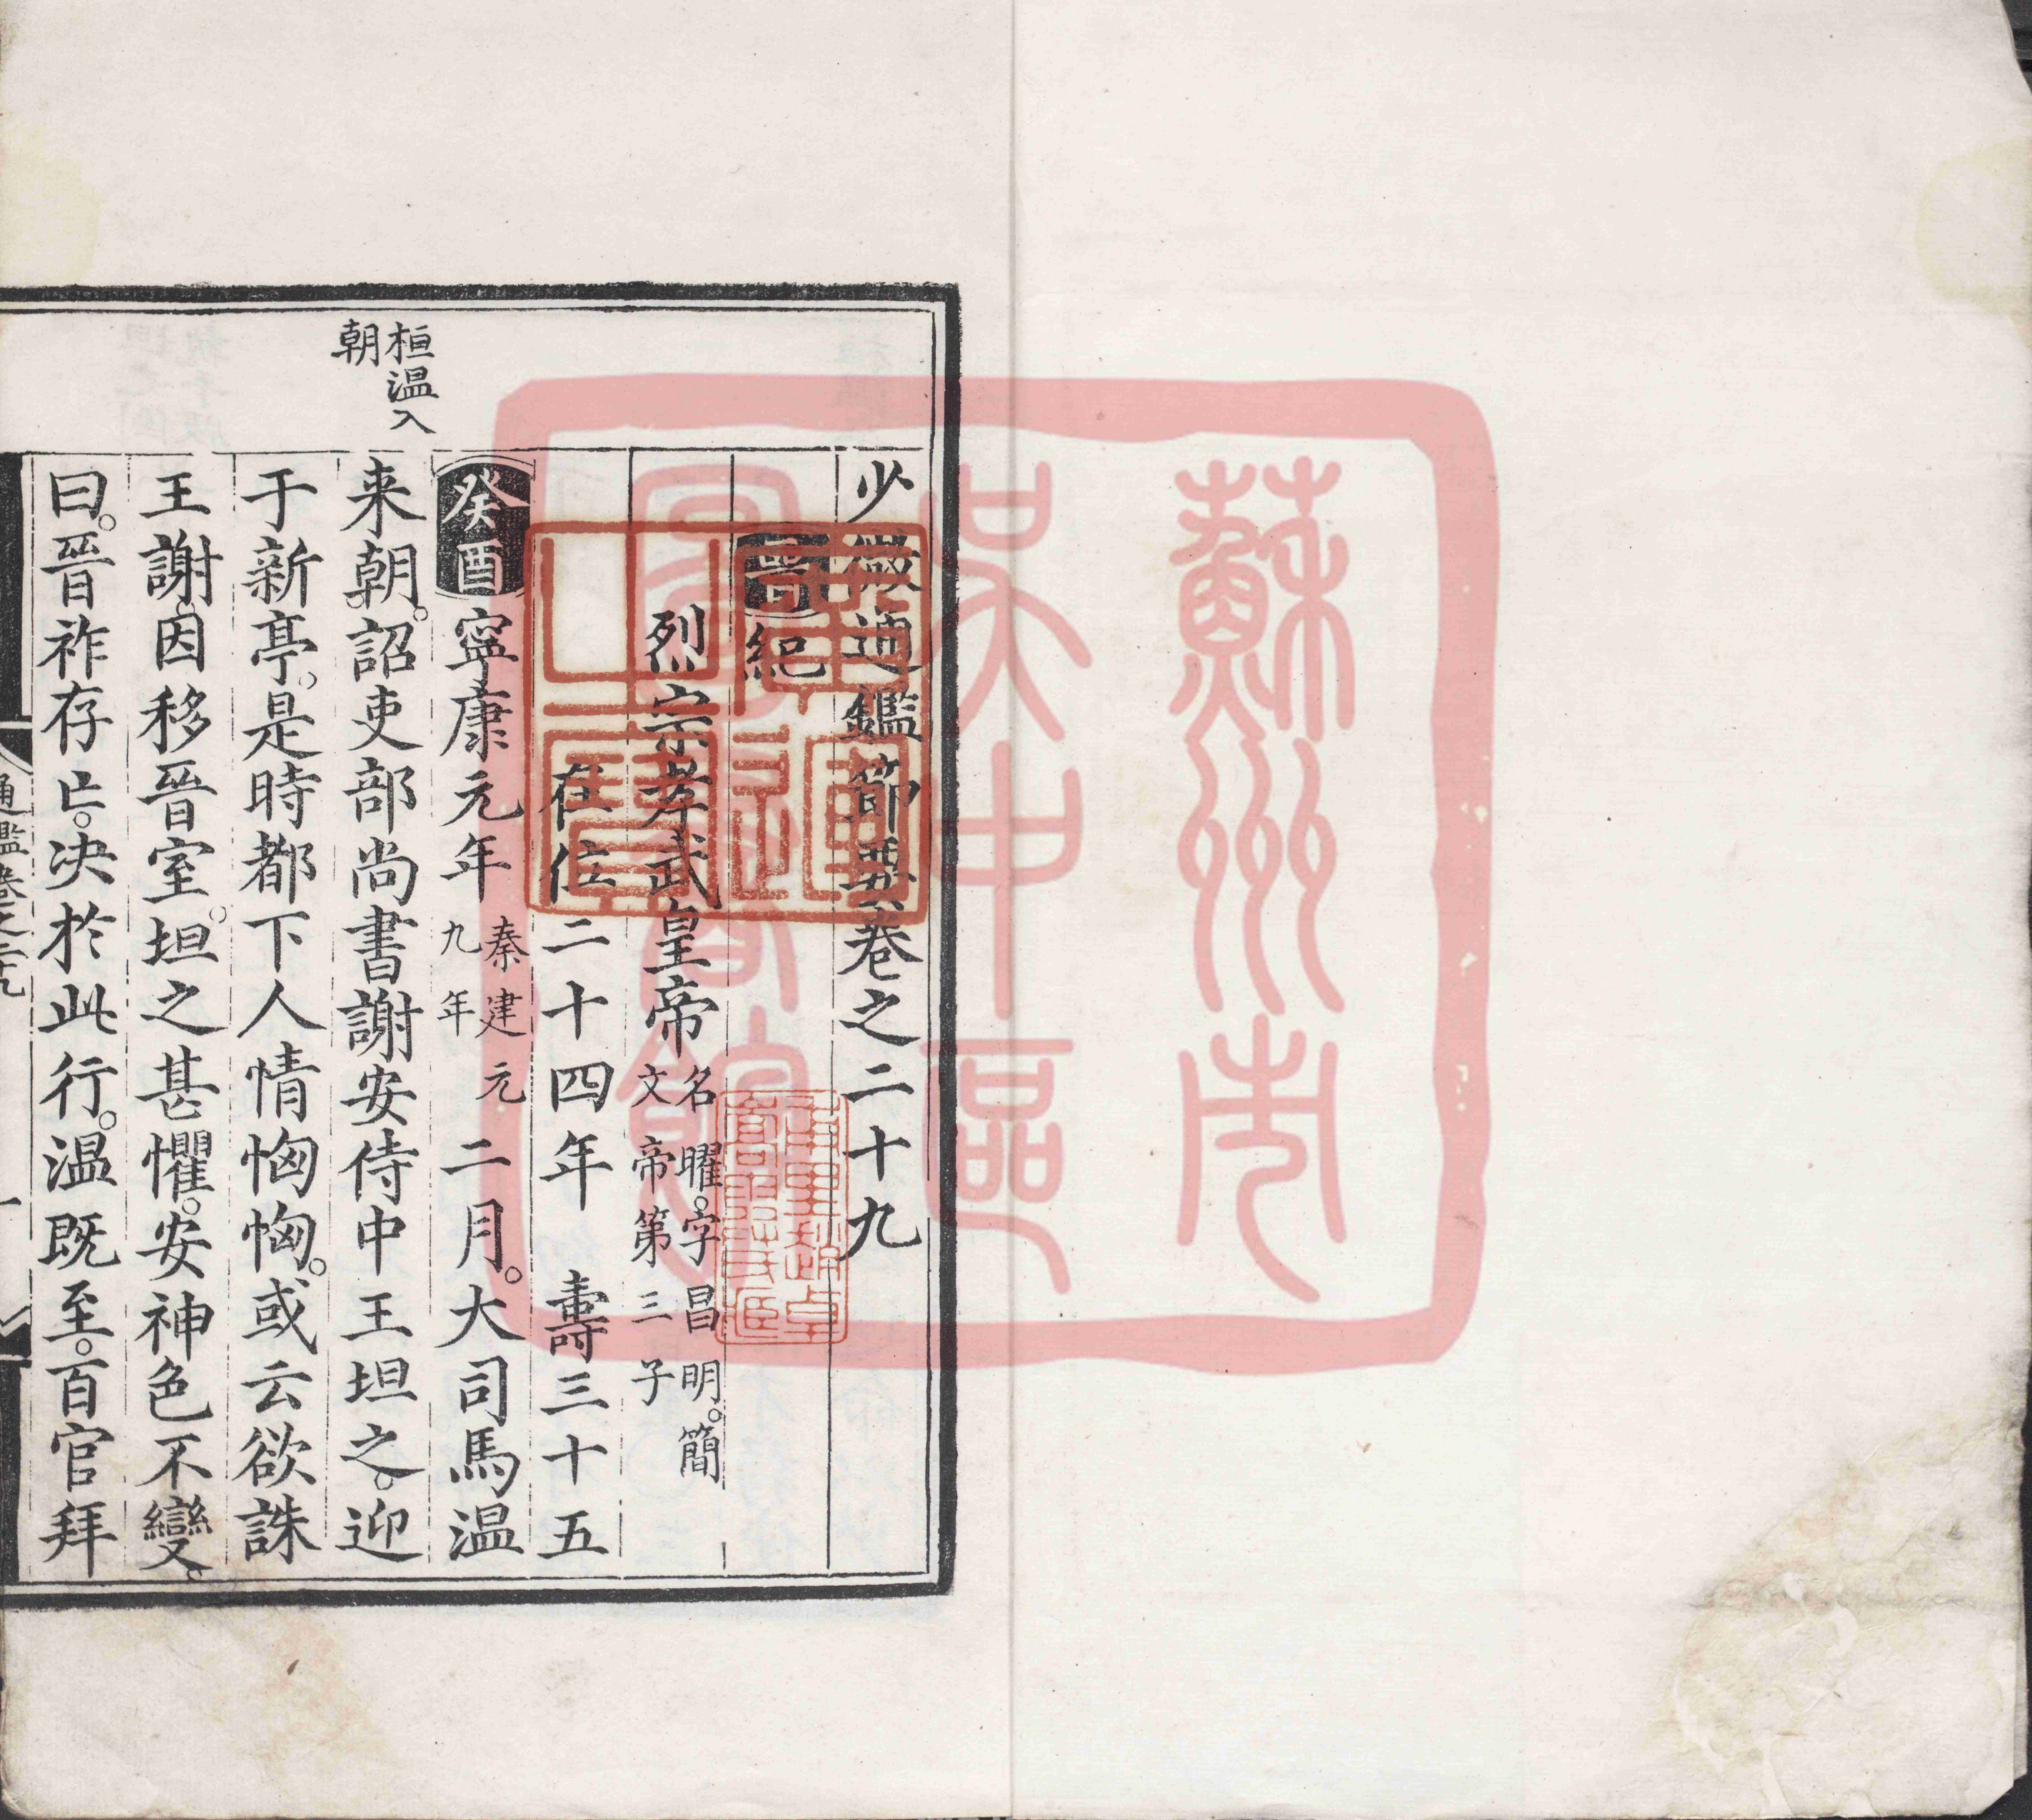 少微通鑑節要卷之二十九
晉紀
烈宗孝武皇帝 名曜。字昌明。簡
文帝第三子
在位二十四年 壽三十五
癸酉 寧康元年 秦建元
九年 二月。大司馬溫
桓溫入
朝
来朝。詔吏部尚書謝安侍中王坦之。迎
于新亭。是時都下人情恟恟。或云欲誅
王謝。因移晉室。坦之甚懼。安神色不變。
曰。晉祚存亡。决於此行。溫既至。百官拜
通鑑卷之二十九
一
蘇州市
吳中區
圖書館